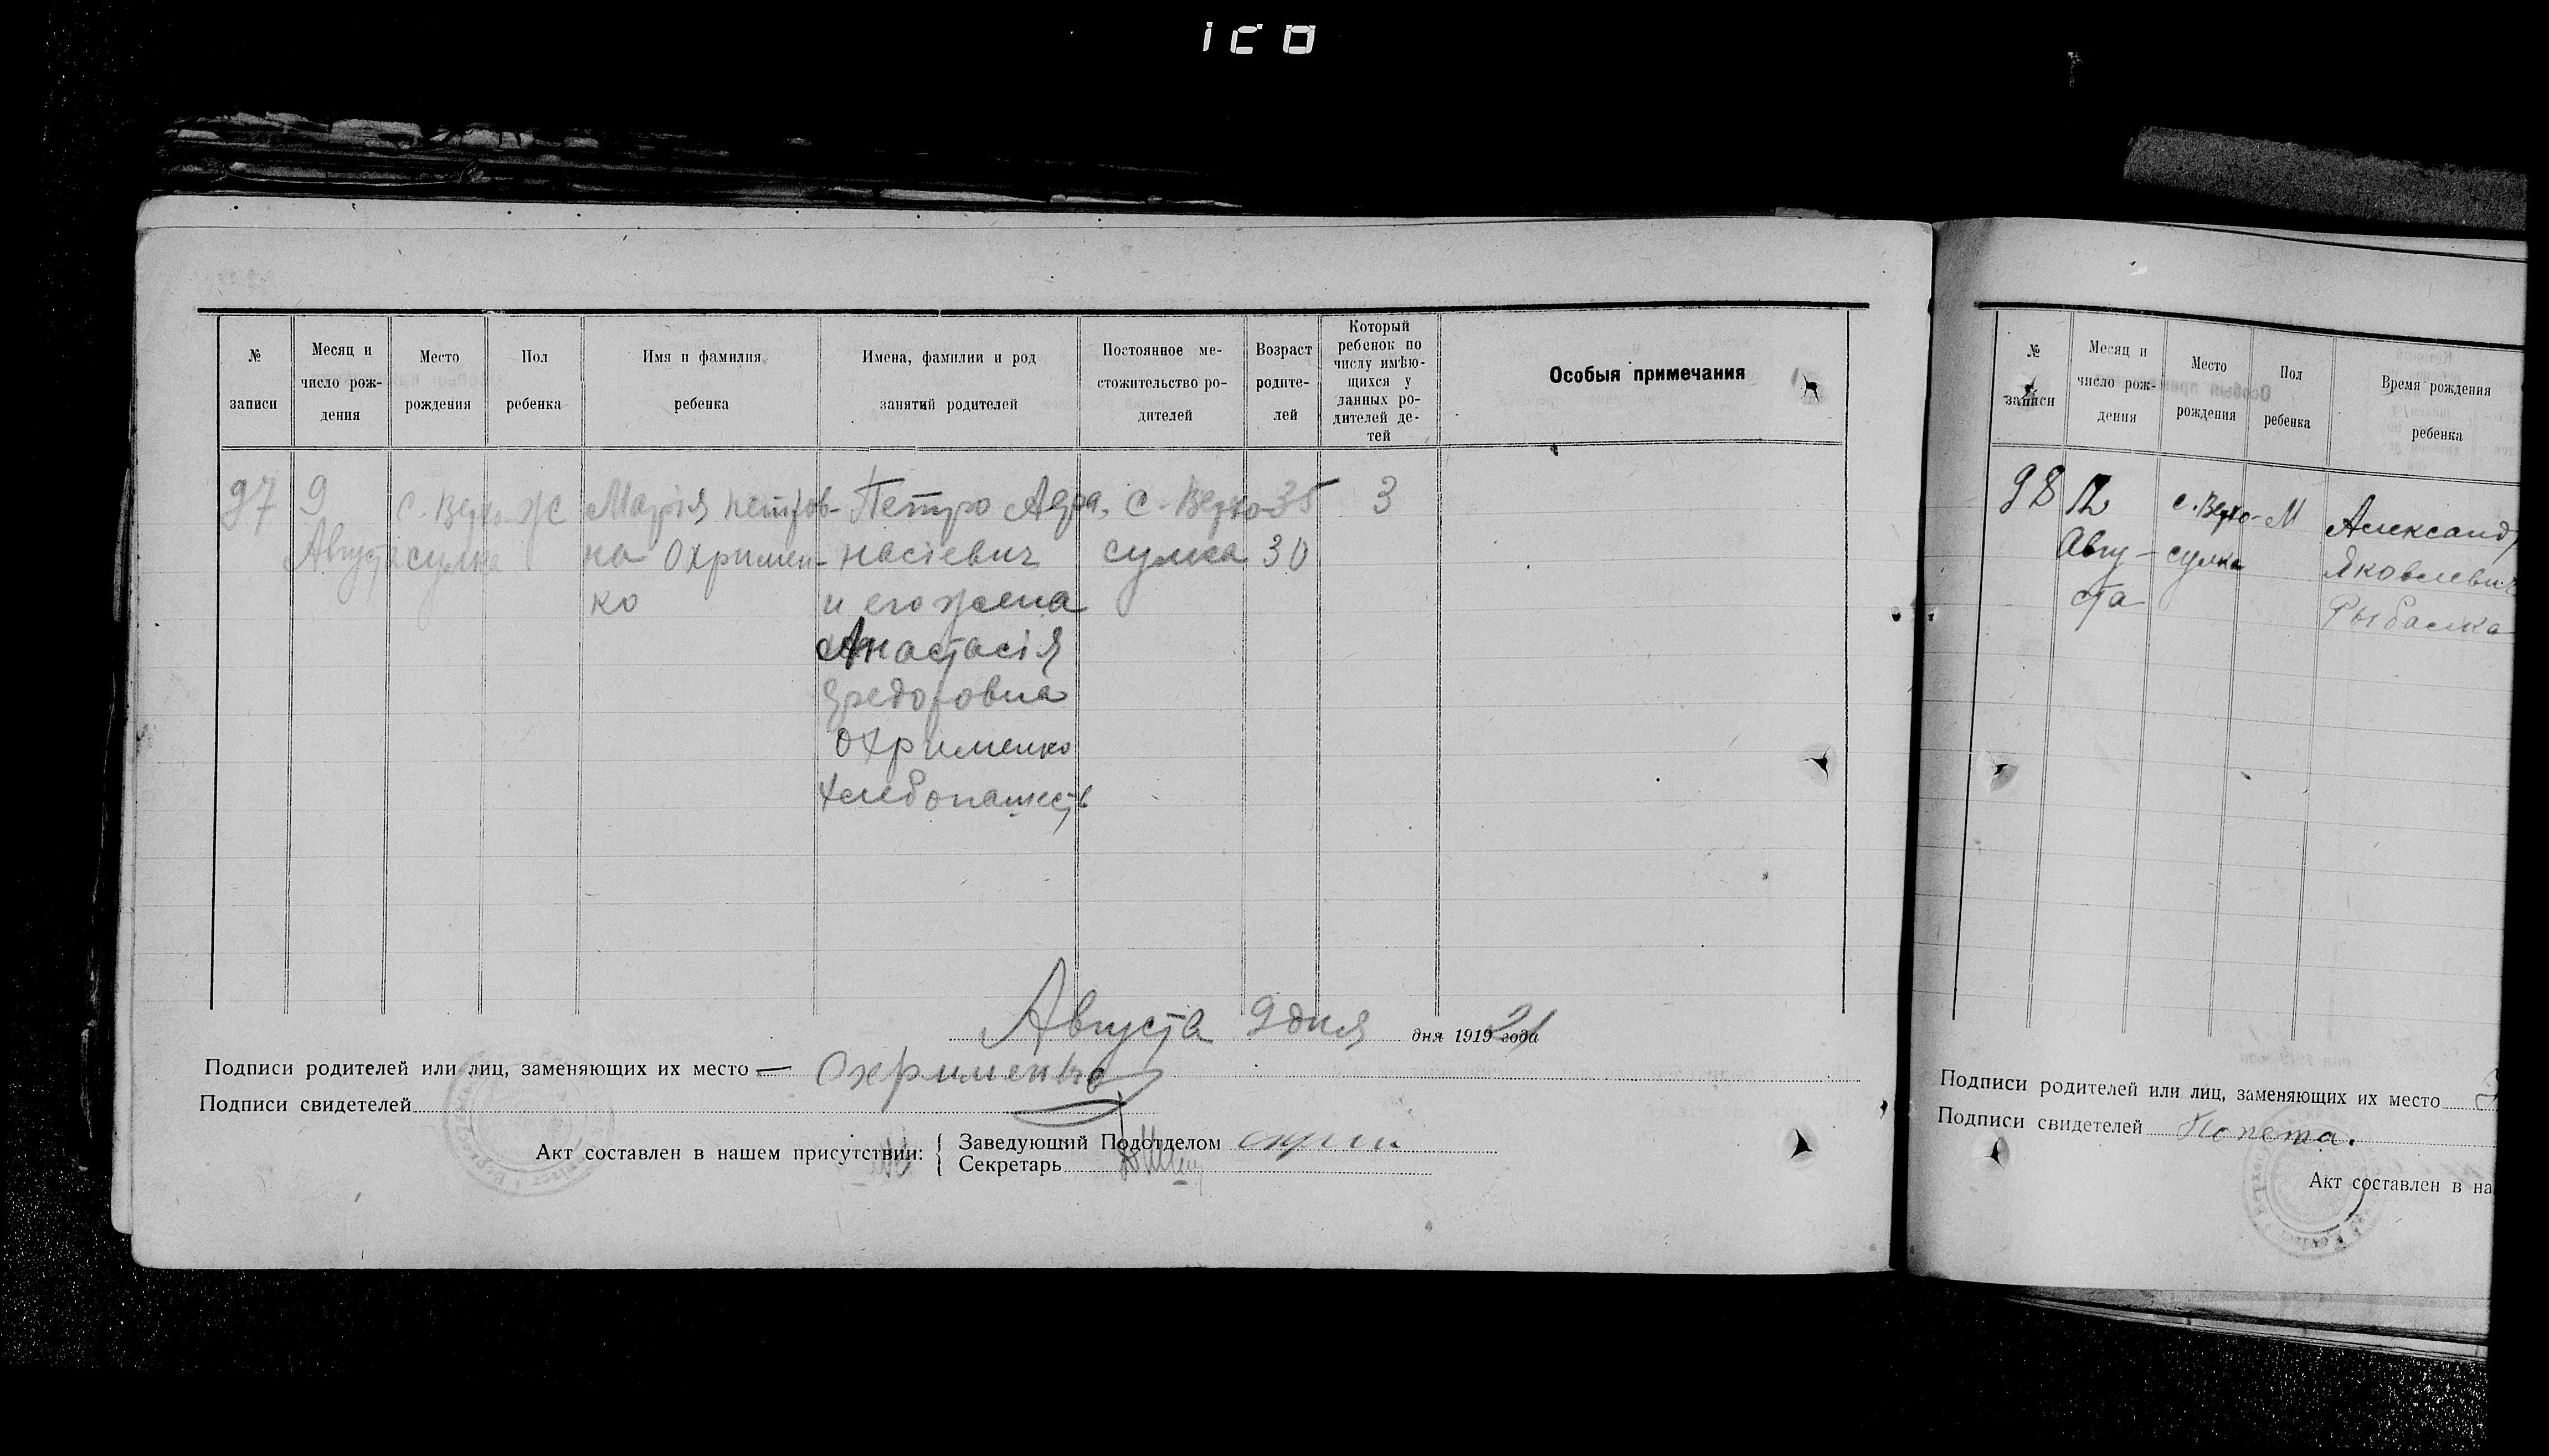 № записи
Месяц и число рождения
Место рождения
Пол ребенка
Имя и фамилия ребенка
Имена, фамилии и род занятий родителей
Постоянное ме-стожительство ро-дителей
Возраст родите-лей
Который ребенок по числу имѣю-щихся у данных ро-дителей де-тей
Особыя примечания
97
9 Августа
с. Верхо-сулка
Ж
Марія Петров-
на Охримен-
ко
Петро Афа-
насіевич
и его жена
Анастасія
Федоровна
Охрименко
Хлебопашеств
с. Верхо-
сулка
35
30
3
Августа 9 дня дня 1919 21 года
Подписи родителей или лиц, заменяющих их место — Охрименко
Подписи свидетелей
Акт составлен в нашем присутствии:
Заведующий Подотделом
Секретарь
№ записи
Месяц и число рож-дения
Место рождения
Пол ребенка
Время рождения ребенка
98
12
Авгу-
ста
с. Верхо-
сулка
М
Александ
Яковлевич
Рыбалка
Подписи родителей или лиц, заменяющих их место
Подписи свидетелей
Акт составлен в на